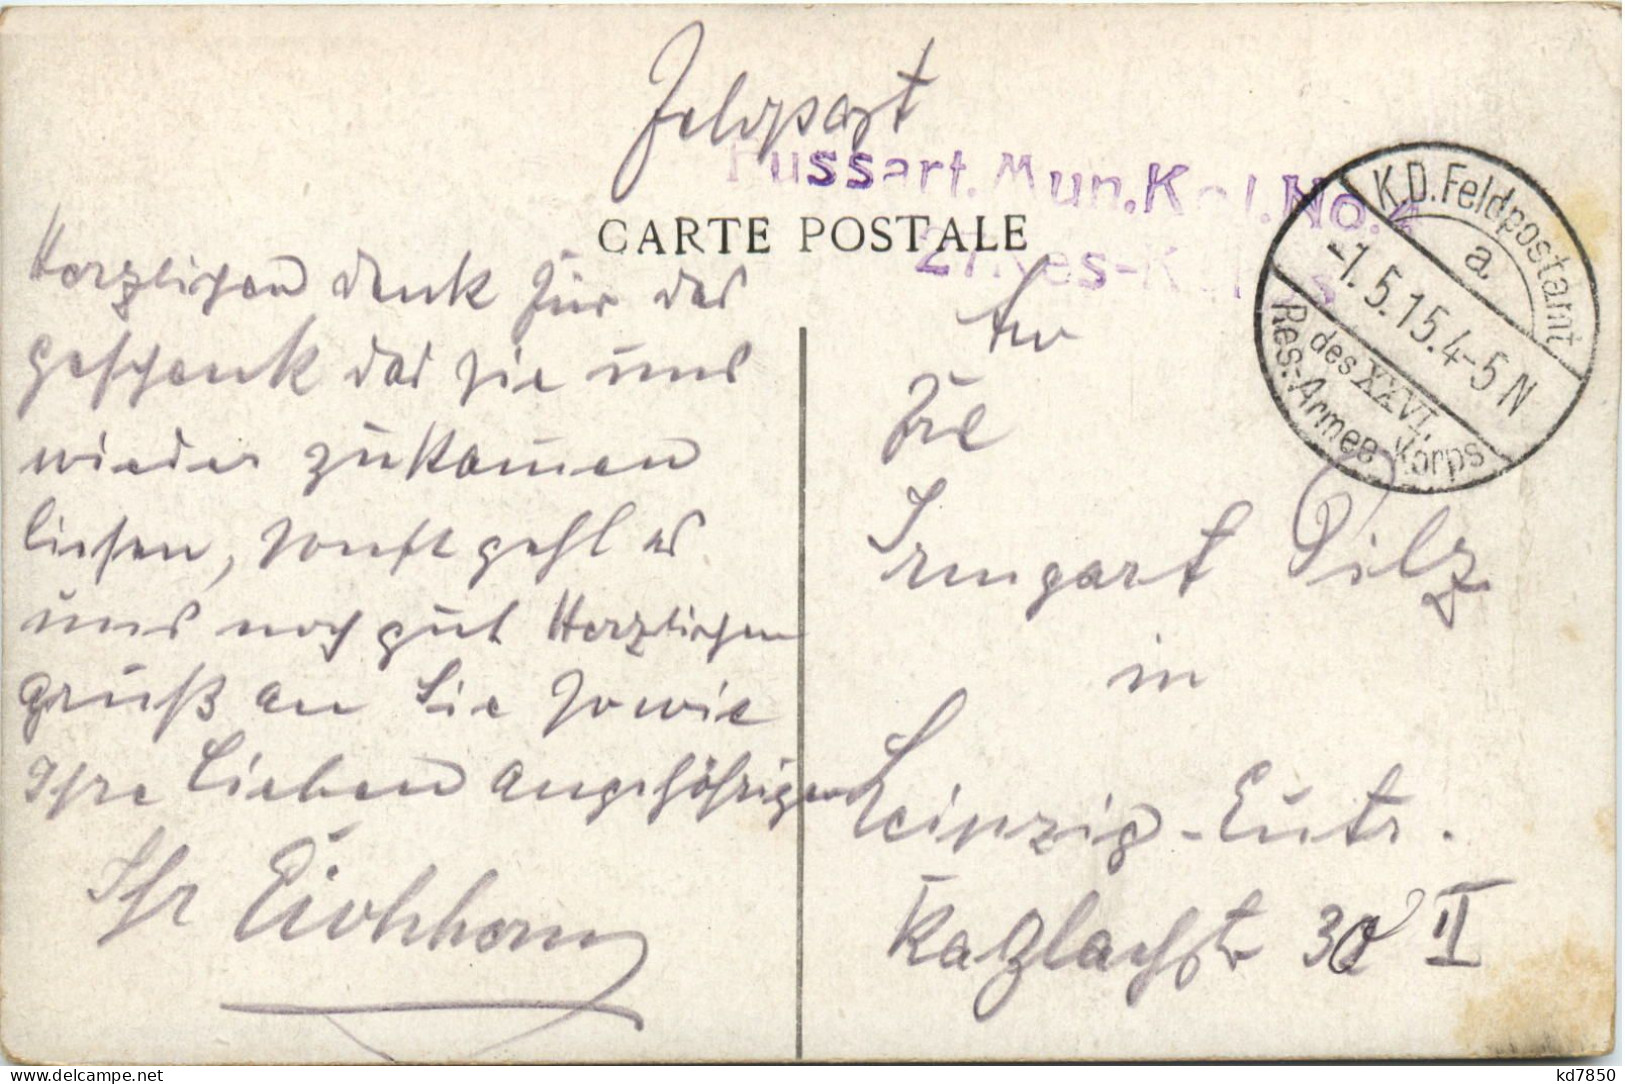 Feldpost
Fussart. Mun. Kol. No. 4
27. Res-Korps
CARTE POSTALE
K.D. Feldpostamt
a.
-1.5.15.4-5 N
des XXVI.
Res.-Armee Korps
Herzlichen dank für das
geschenk das sie uns
wieder zukomen
liesen, sonst gehl es
uns noch gut Herzlichen
Gruß an Sie sowie
Ihre Lieben angehöhrigen
Ihr Eichhorn
An
Frl
Irmgart Pilz
in
Leipzig-Eutr.
30 II
www.delcampe.net
kd7850